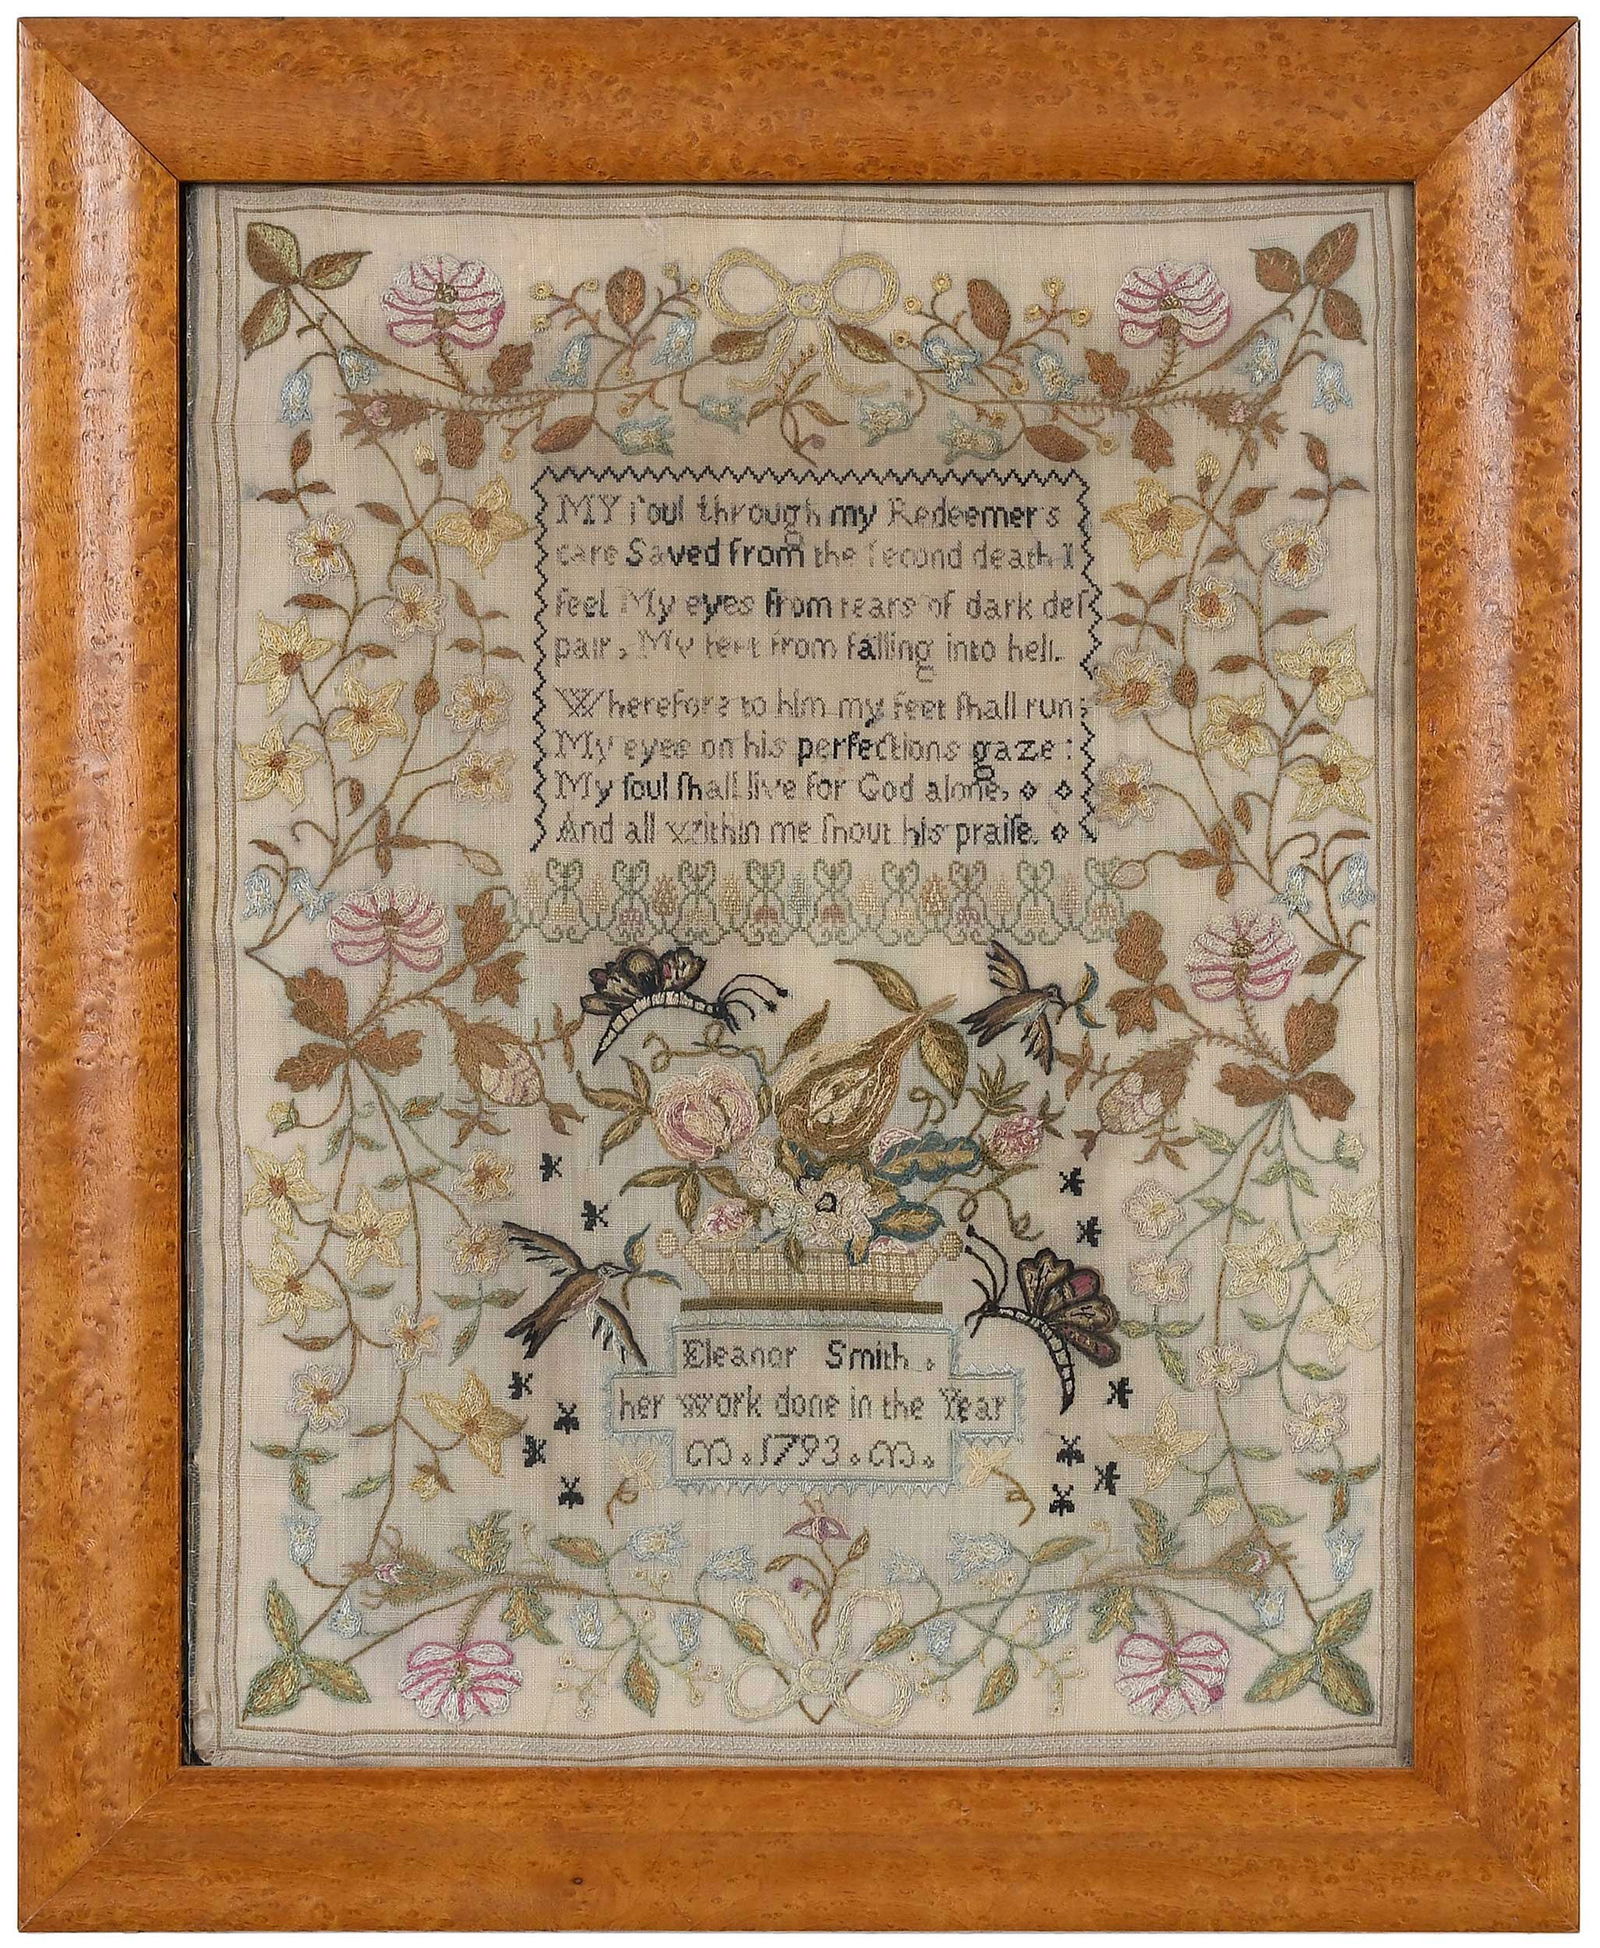 MY ſoul through my Redeemers
care Saved from the ſecond death I
feel My eyes from tears of dark deſ
pair, My feet from falling into hell.
Wherefore to him my feet ſhall run;
My eyes on his perfections gaze:
My ſoul ſhall live for God alone,
And all within me ſhout his praiſe.
Eleanor Smith.
her work done in the Year
1793